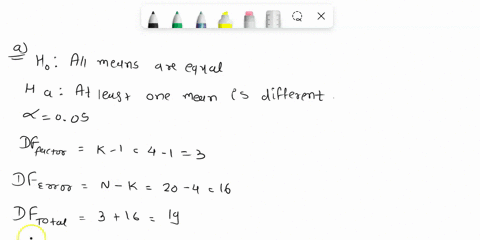 a) H₀: All means are equal
Ha: At least one mean is different.
α = 0.05
DFfactor = K-1 = 4-1 = 3
DFError = N-K = 20-4 = 16
DFTotal = 3+16 = 19